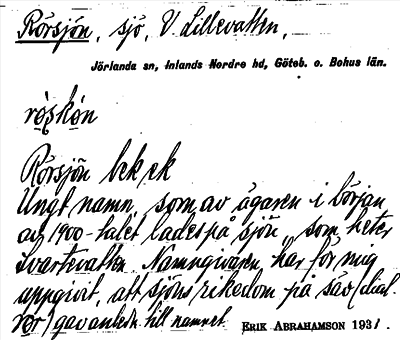 Rörsjön, sjö, V. Lillevatten,
Jörlanda sn, Inlands Nordre hd, Göteb. o. Bohus län.
röskon
Rörsjön lek.ek
Ungt namn, som av ägaren i början
av 1900-talet lades på sjön, som heter
Svartevatten. Namngivaren har för mig
uppgivit, att sjöns rikedom på säv (dial.
rör) gav anledn. till namnet. ERIK ABRAHAMSON 1931.